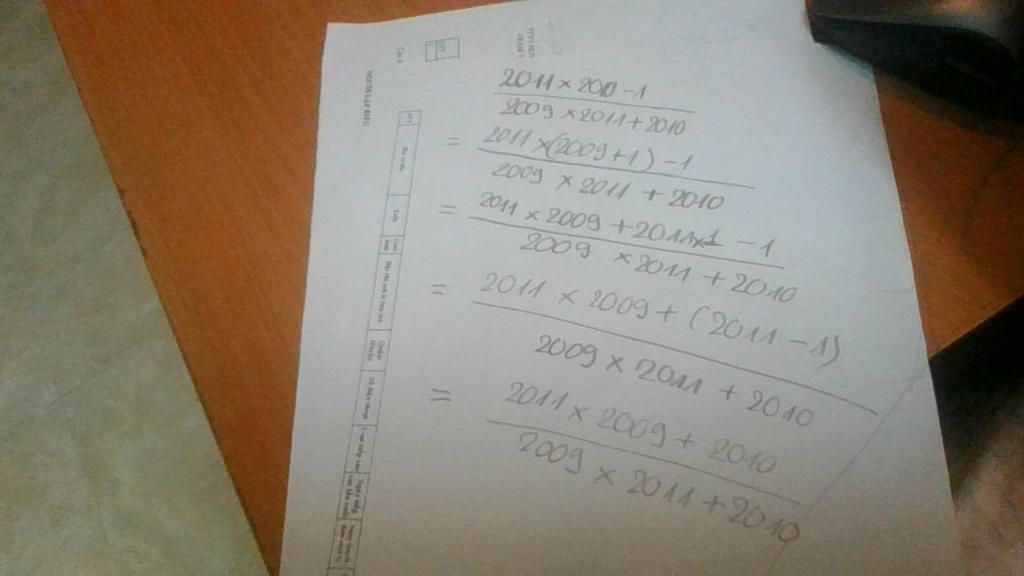 2011 × 2010 - 1
2009 × 2011 + 2010
= 2011 × (2009 + 1) - 1
2009 × 2011 + 2010
= 2011 × 2009 + 2011 × 1 - 1
2009 × 2011 + 2010
= 2011 × 2009 + (2011 - 1)
2009 × 2011 + 2010
= 2011 × 2009 + 2010
2009 × 2011 + 2010